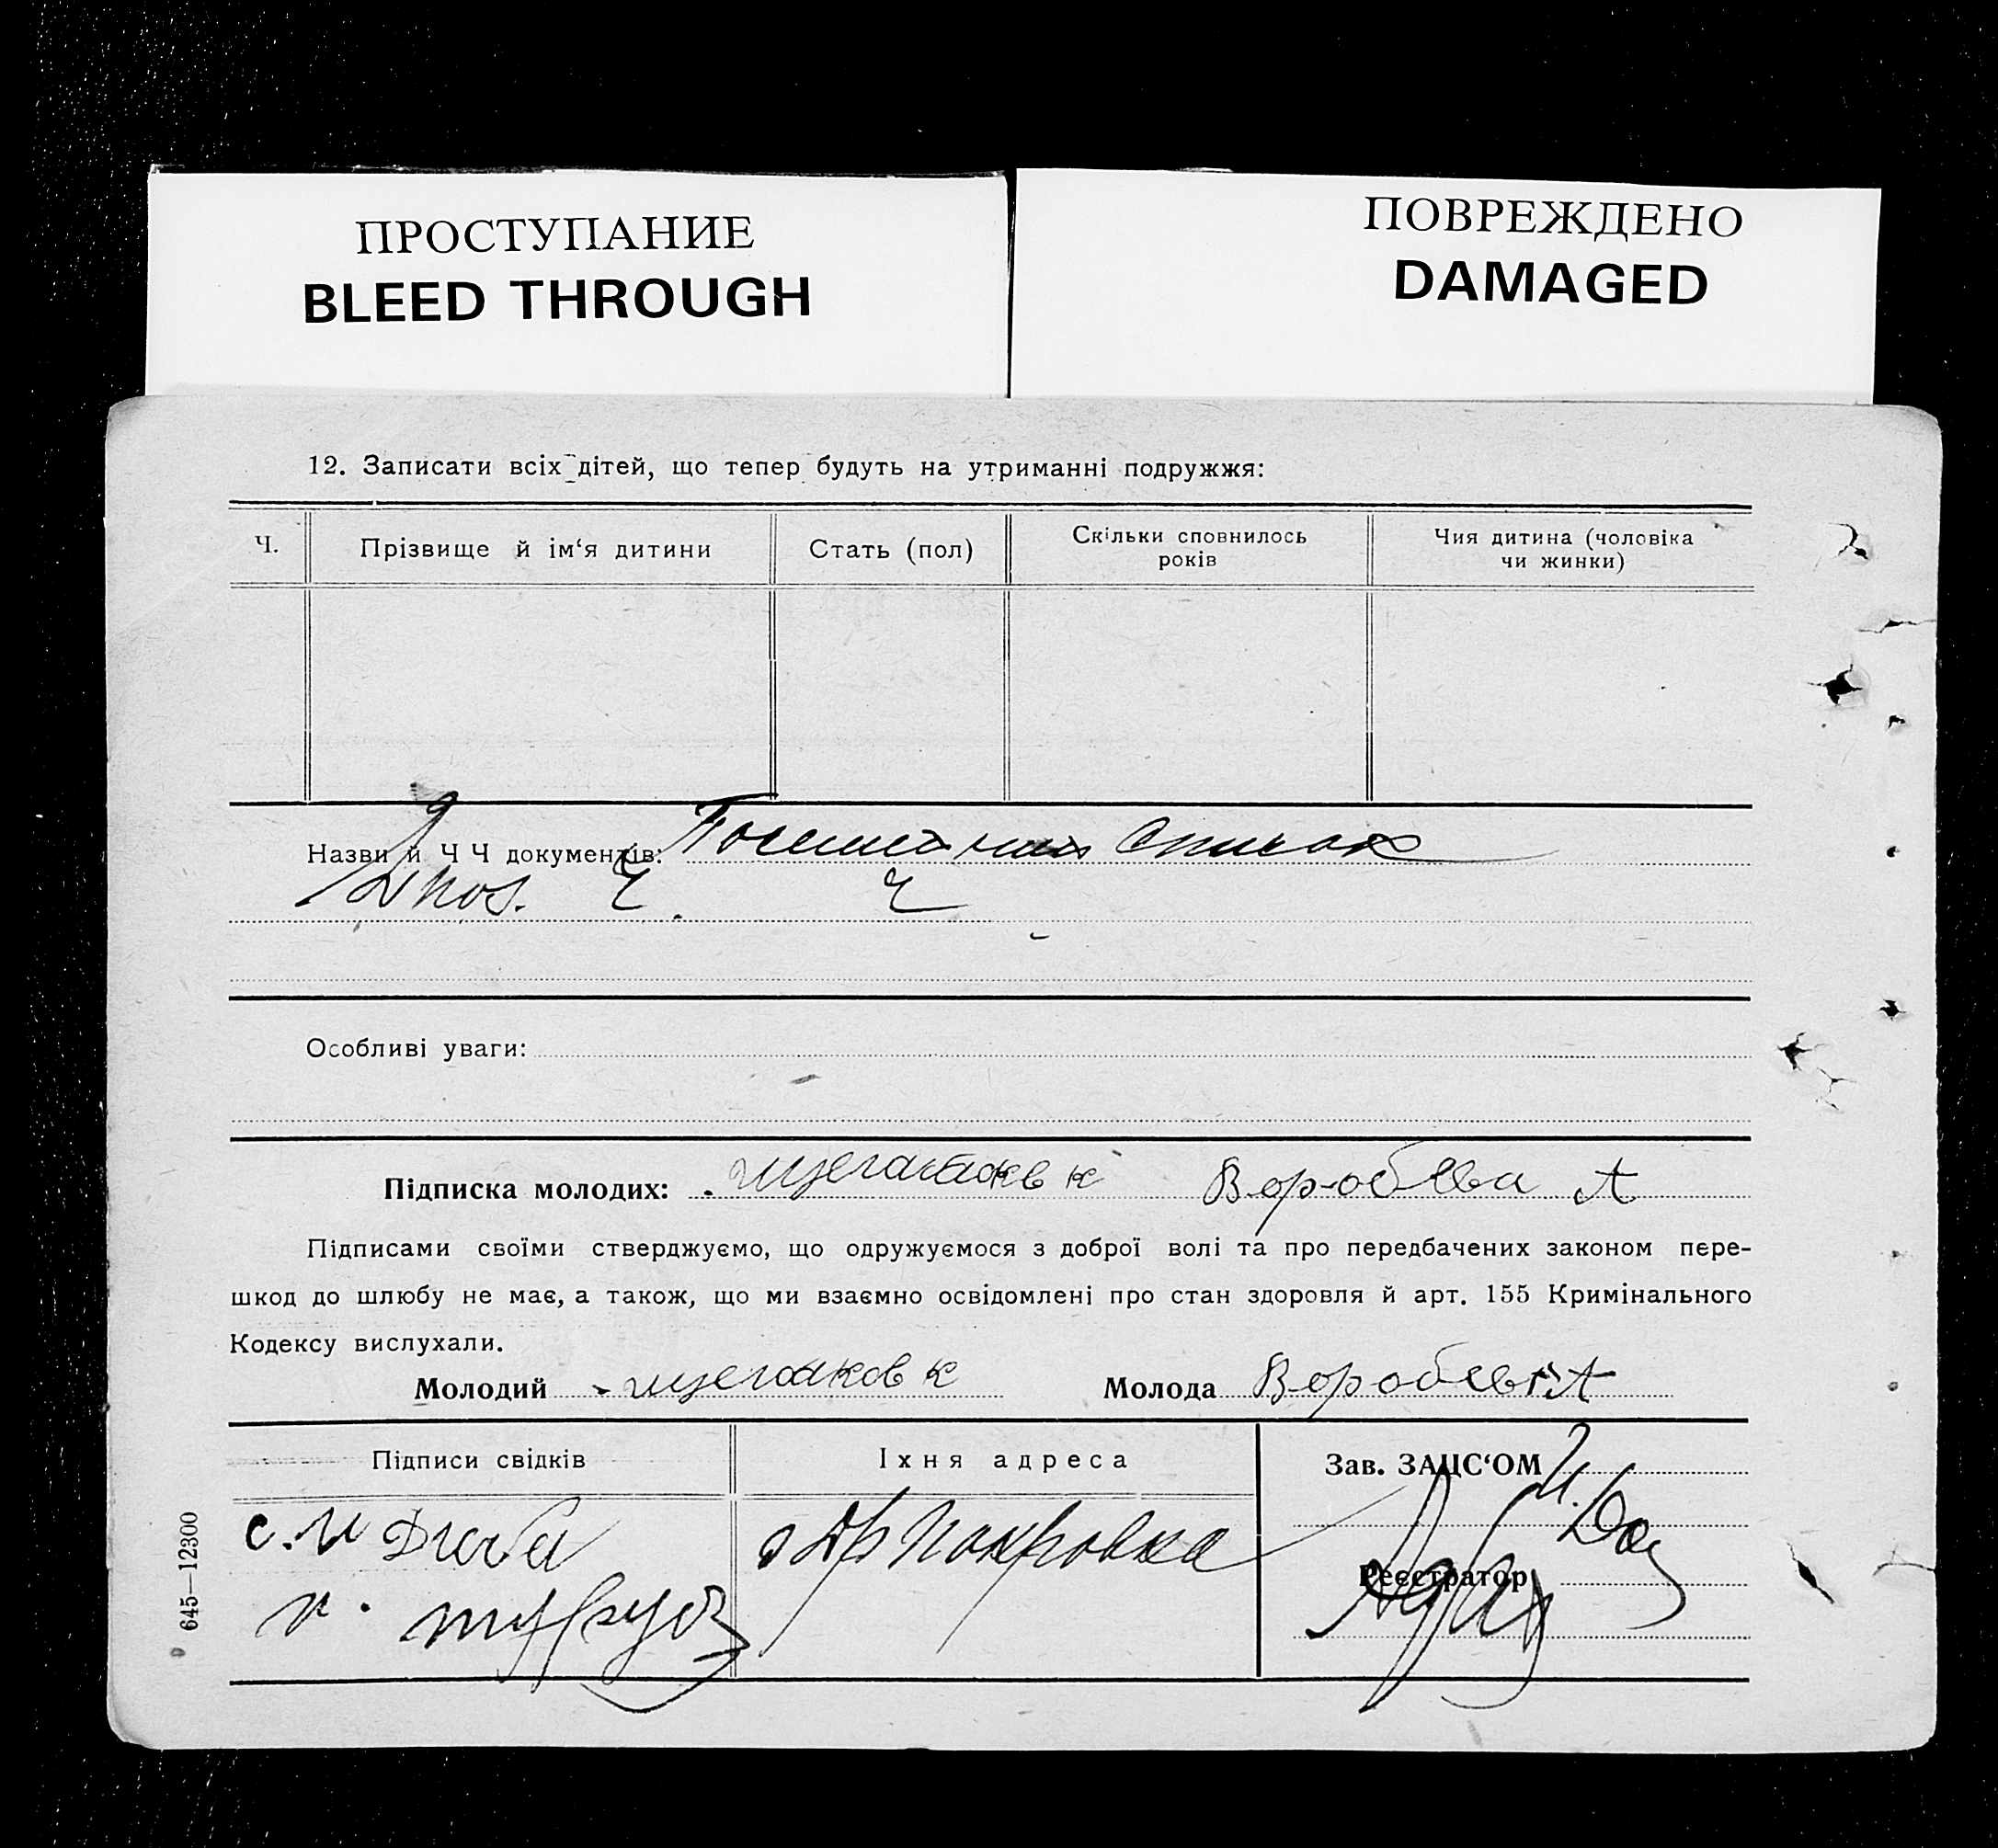 ПРОСТУПАНИЕ
BLEED THROUGH
ПОВРЕЖДЕНО
DAMAGED
12. Записати всіх дітей, що тепер будуть на утриманні подружжя:
Ч.
Прізвище й ім‘я дитини
Стать (пол)
Скільки сповнилось
років
Чия дитина (чоловіка
чи жинки)
Назви й Ч Ч документів: список
Особливі уваги:
Підписка молодих: Воробева А
Підписами своїми стверджуємо, що одружуємося з доброї волі та про передбачених законом пере-
шкод до шлюбу не має, а також, що ми взаємно освідомлені про стан здоровля й арт. 155 Кримінального
Кодексу вислухали.
Молодий к Молода А
Підписи свідків
Їхня адреса
Зав. ЗАЦС‘ОМ
с. Покровка
Реєстратор
645—12300